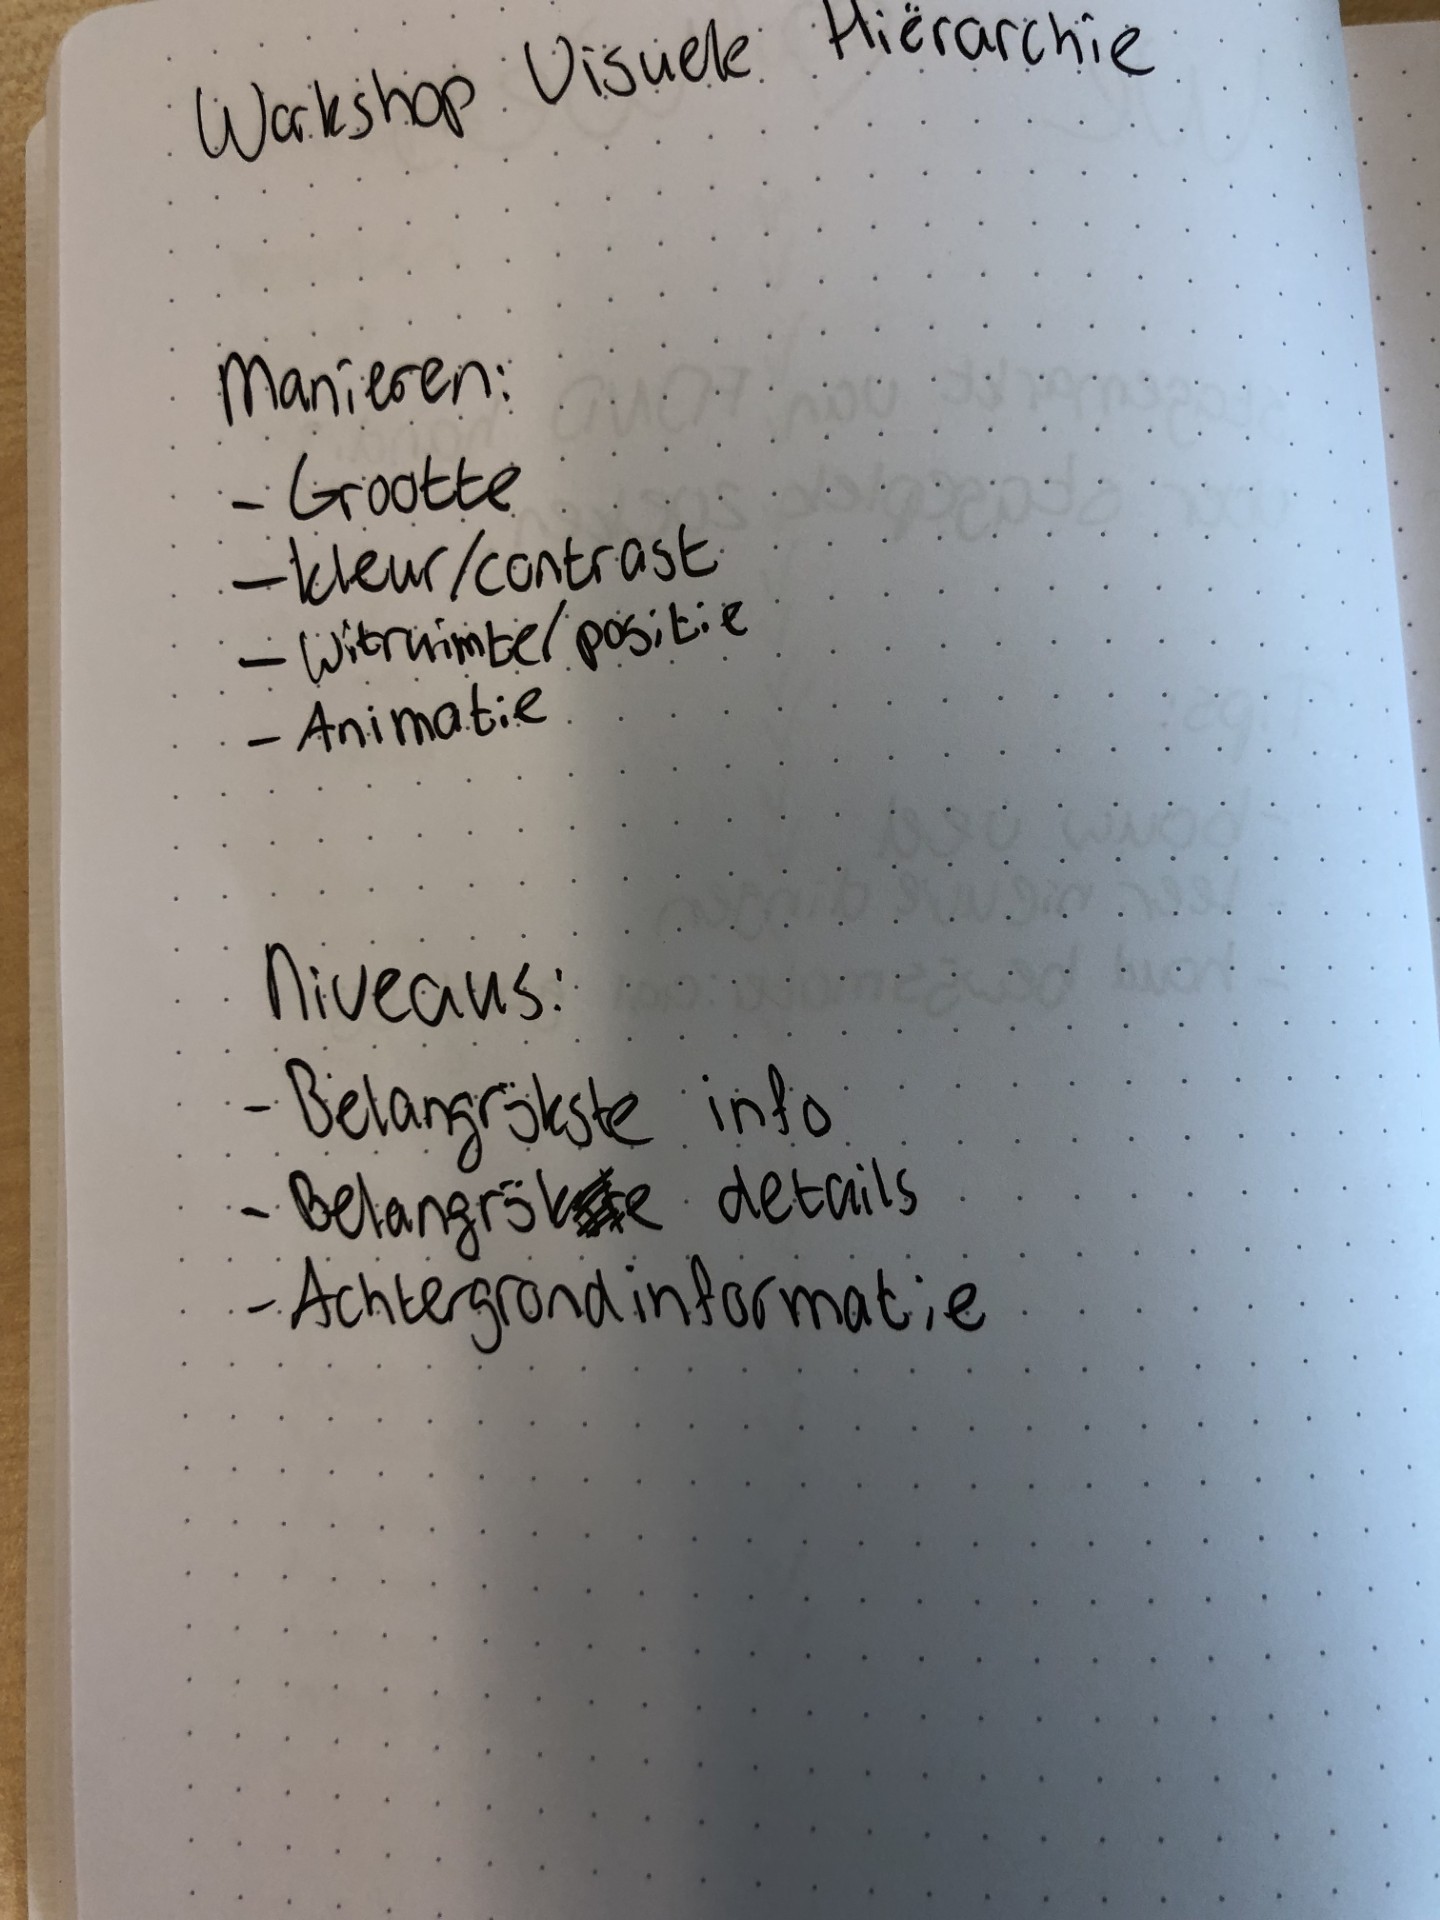 Workshop Visuele Hiërarchie
Manieren:
- Grootte
- kleur/contrast
- Witruimte/positie
- Animatie
Niveaus:
- Belangrijkste info
- Belangrijke details
- Achtergrondinformatie